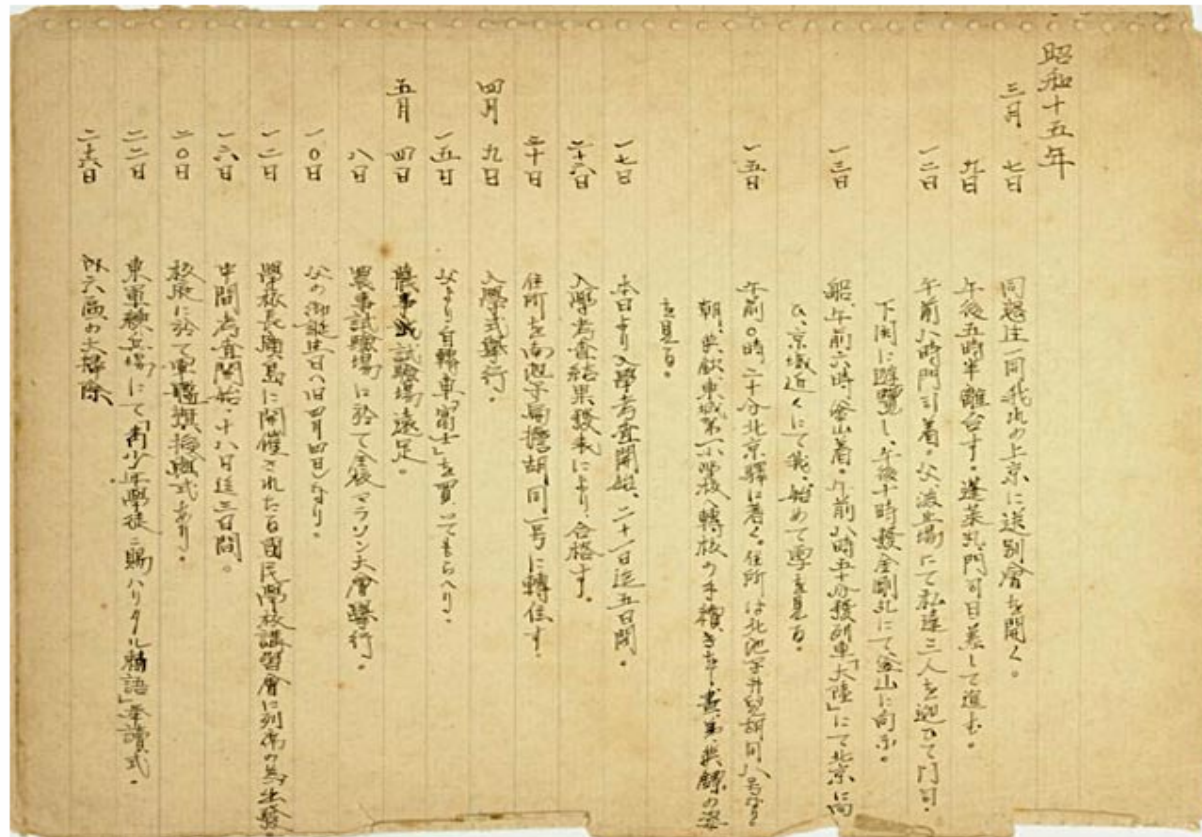 昭和十五年
三月 七日 同窓生一同我北の上京に送別會を開く。
九日 午後五時半離台す。蓬萊丸門司目差して進む。
一二日 午前八時門司着。父、波止場にて私達三人を迎ひて門司・
下関に遊覽し、午後十時發金剛丸にて釜山に向ふ。
一三日 船、午前六時釜山着。午前八時五十分發列車「大陸」にて北京に向
ひ、京城近くにて我、始めて雪を見る。
一五日 午前0時二十分北京驛に著く。住所は北池子井兒胡同八号なり
朝、東城第一小學校へ轉校の手續きを
を見る。
一七日 本日より入學考査開始、二十一日迄五日間。
二十六日 入學考査結果發表により、合格す。
三十日 住所を南池子胡同一号に轉住す。
四月 九日 入學式擧行。
一五日 父より自轉車「富士」を買ってもらへり。
五月 四日 農事試驗場遠足。
八日 農事試驗場に於て全校マラソン大會擧行。
一0日 父の御誕生日(旧四月四日)なり。
一二日 學校長廣島に開催された百國民學校講習會に列席の為出發。
一六日 中間考査開始・十八日迄三日間。
二0日 校庭に於て軍艦旗掲揚式あり。
二二日 東軍練兵場にて「青少年學徒ニ賜ハリタル勅語」奉讀式。
二十六日 外六區の大掃除